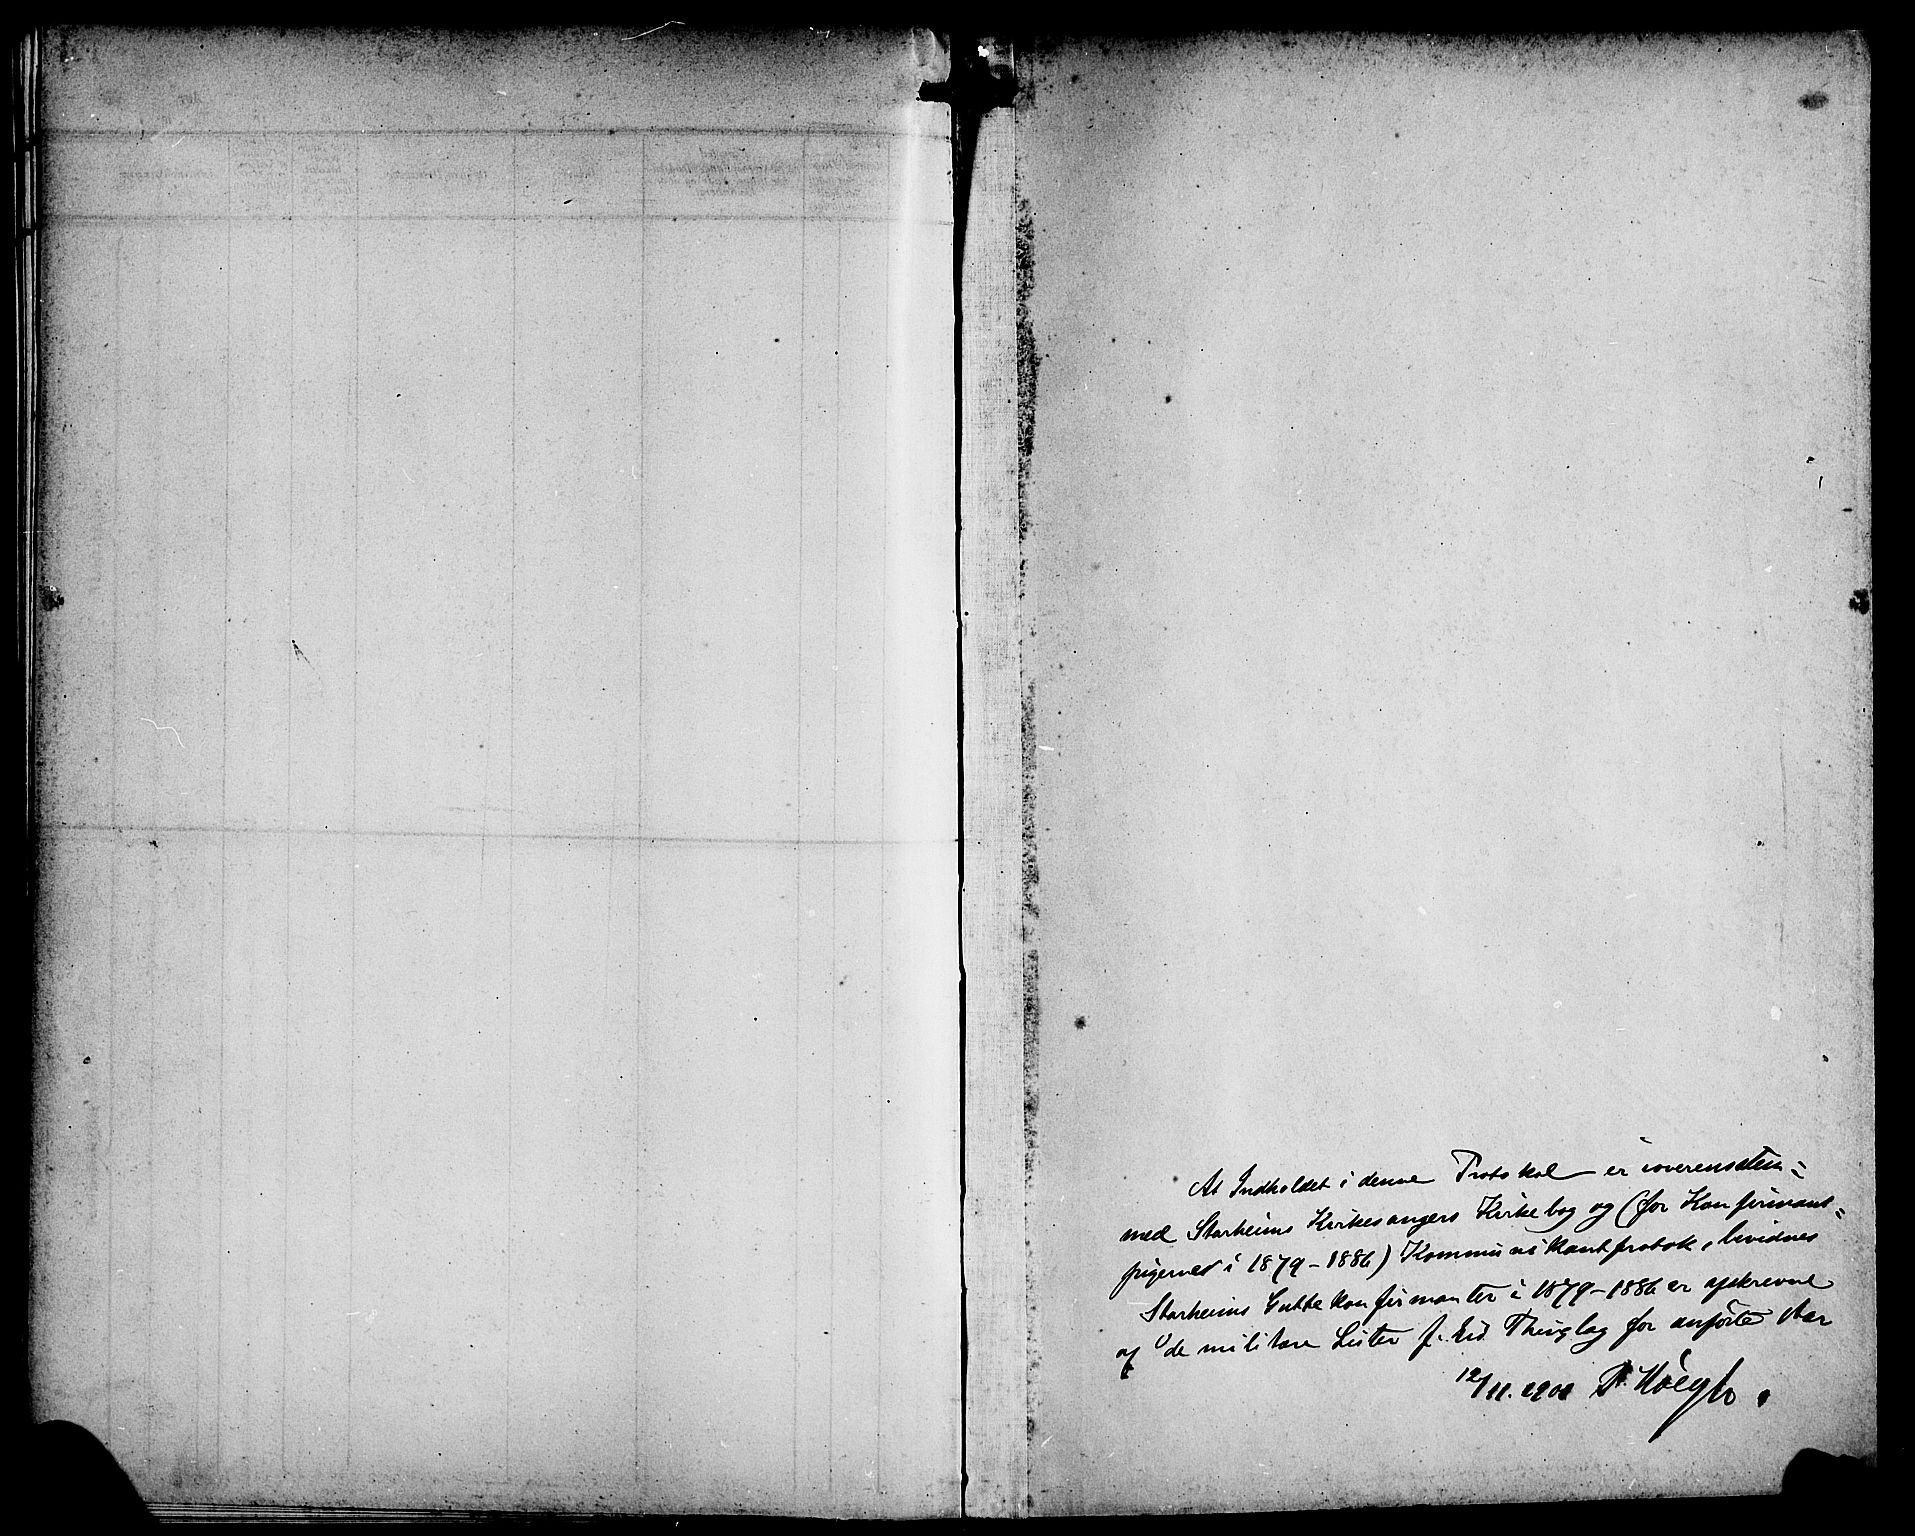 At Indholdet i denne Protokol er ioverensstem=
med Starheims Kirkesangers Kirkebog og (for Konfirmant=
pigernes i 1879–1886) Kommunikantprotok, bevidnes
Starheims Guttekonfirmanter i 1879–1886 er afskrevne
af de militære Lister f. Eid Thinglag for anførte Aar
12/11. 1901